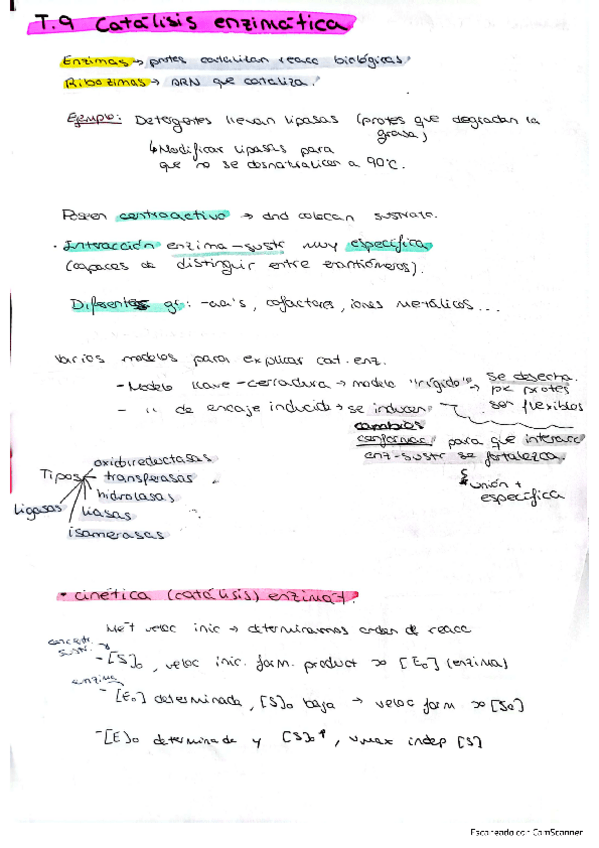 T.9 Catálisis enzimática
Enzimas → protes catalizan reacc biológicas
Ribozimas → ARN que cataliza.
Ejemplo: Detergentes llevan lipasas (protes que degradan la
grasa)
↳ Modificar lipasas para
que no se desnaturalicen a 90°C.
Poseen centro activo → dnd colocan sustrato.
· Interacción enzima-sustr muy específica
(capaces de distinguir entre enantiómeros).
Diferentes gr: -aa's, cofactores, iones metálicos...
Varios modelos para explicar cat. enz.
- Modelo llave-cerradura → modelo "rígido" → se desecha.
pq protes
ser flexibles
- '' de encaje inducido → se inducen
cambios
conformac para que interacc
enz-sustr se fortalezca.
unión +
específica
Tipos
oxidoreductasas
transferasas
hidrolasas
liasas
isomerasas
ligasas
• cinética (catálisis) enzimát.
Mét veloc inic → determinamos orden de reacc
concentr.
sustr.
- [S]₀, veloc inic. form. product ∝ [E₀] (enzima)
enzima
- [E₀] determinada, [S]₀ baja → veloc form ∝ [S₀]
- [E]₀ determinada y [S]₀↑, vmax indep [S]
Escaneado con CamScanner